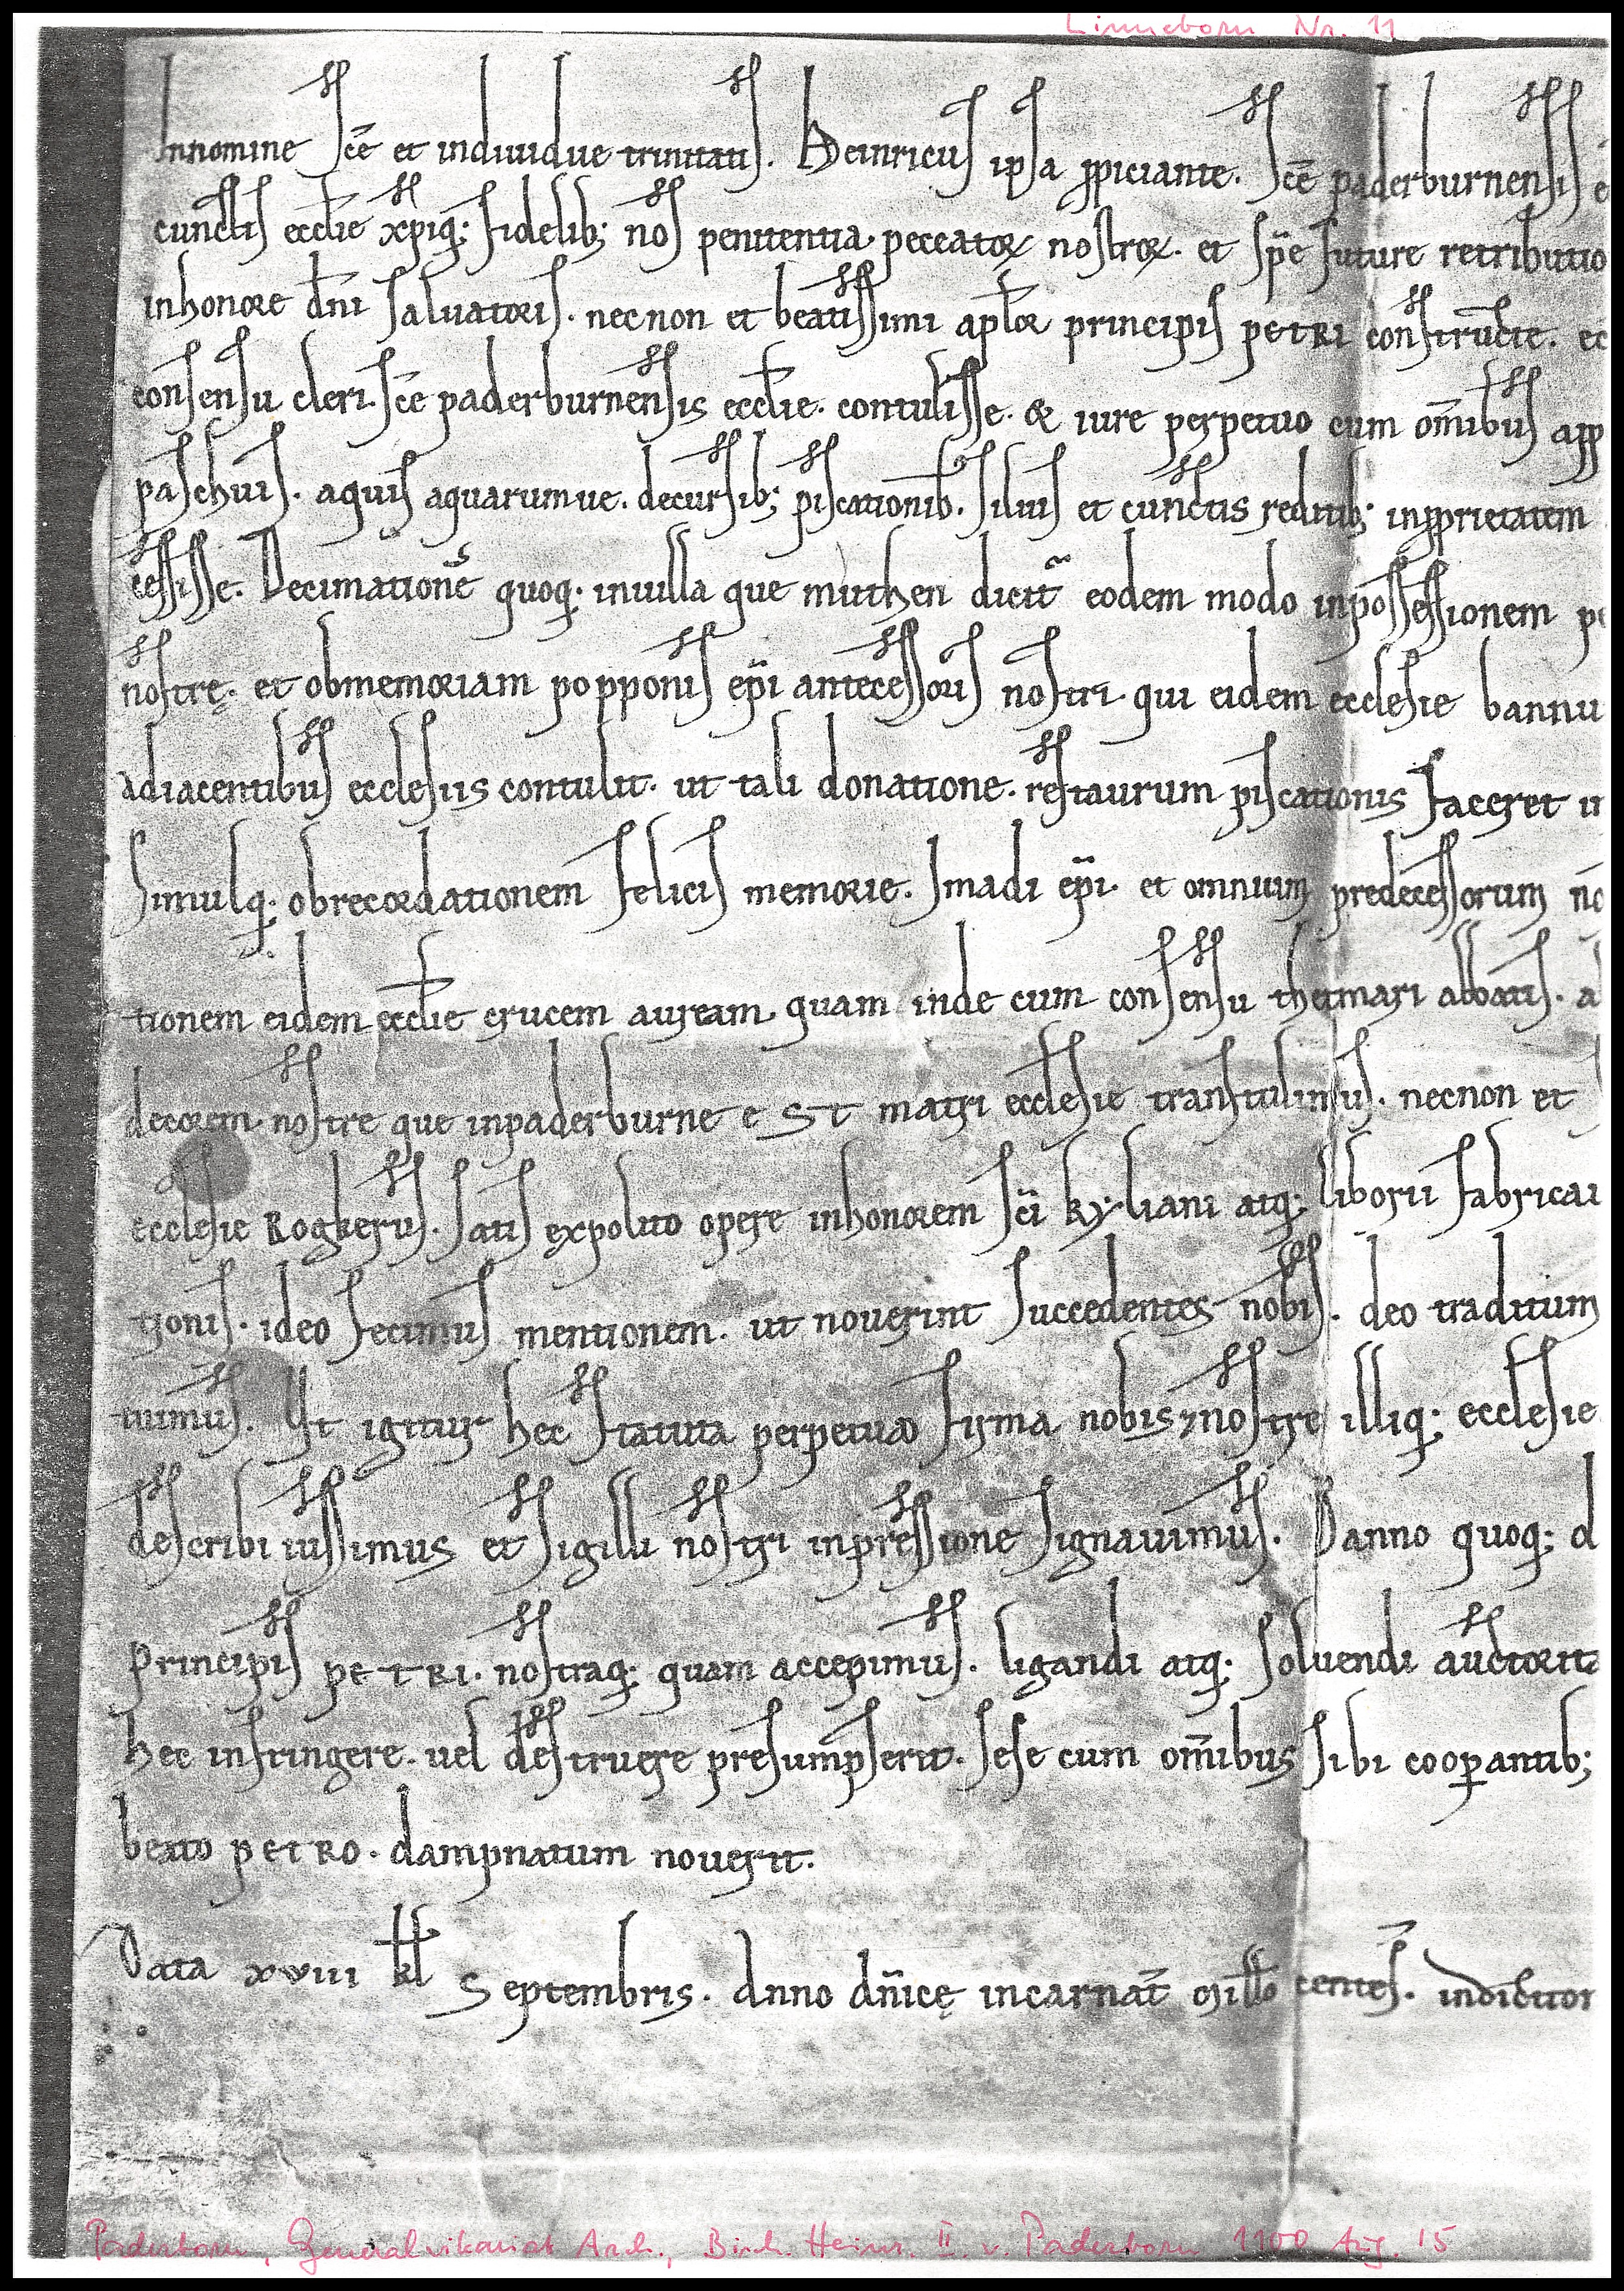 Linneborn Nr. 11
Innomine sce͂ et indiuidue trinitatis. Heinricus ipsa ꝓpiciante. sce͂ paderburnensis
cunctis eccłie xp̄iq; fidelib; nos penitentia peccatoꝝ nostroꝝ. et spe͂ future retributio
inhonore dn̄i saluatoris. necnon et beatissimi apłoꝝ principis PETRI constructe. ec
consensu cleri. sce͂ paderburnensis eccłie. contulisse. & iure perpetuo cum om̄ibus app
paschuis. aquis aquarumue. decursib; piscationib. siluis et cunctis reditib; inꝓprietatem
cessisse. Decimatione͂ quoq; inuilla que muthen dicit͂ eodem modo inpossessionem pe
nostrę. et obmemoriam popponis ep̄i antecessoris nostri. qui eidem ecclesie bannu
adiacentibus ecclesiis contulit. ut tali donatione. restaurum piscationis faceret
Simulq; obrecordationem felicis memorie. Imadi ep̄i. et omnium predecessorum no
tionem eidem eccłie crucem auream quam inde cum consensu thetmari abbatis. a
decorem nostre que inpaderburne eST matri ecclesie transtulimus. necnon et
ecclesie Rogkerus. satis expolito opere inhonorem sc̄i kyliani atq; liborii fabricau
tionis. ideo fecimus mentionem. ut nouerint succedentes nobis. deo traditum
tuimus. Ut igitur hec statuta perpetuo firma nobis ⁊ nostre illiq; ecclesie
describi iussimus et sigilli nostri inpressione signauimus. Banno quoq; d
principis PETRI. nostraq; quam accepimus. ligandi atq; soluendi auctorita
hec infringere. uel destruere presumpserit. sese cum om̄ibus sibi coopantib;
beato PETRO. dampnatum nouerit.
Data xviii kł Septembris. Anno dn̄icę incarnat͂ millo centes. indiction
Paderborn, Generalvikariat Arch., Bisch. Heinr. II. v. Paderborn 1100 Aug. 15